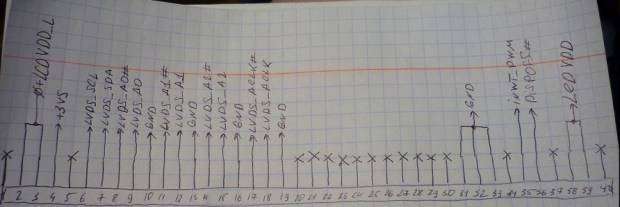 +LCDVDD_L
+3VS
LVDS_SCL
LVDS_SDA
LVDS_A0#
LVDS_A0
GND
LVDS_A1#
LVDS_A1
GND
LVDS_A2#
LVDS_A2
GND
LVDS_ACLK#
LVDS_ACLK
GND
GND
INVT_PWM
DISPOFF#
LEDVDD
2 3 4 5 6 7 8 9 10 11 12 13 14 15 16 17 18 19 20 21 22 23 24 25 26 27 28 29 30 31 32 33 34 35 36 37 38 39 40